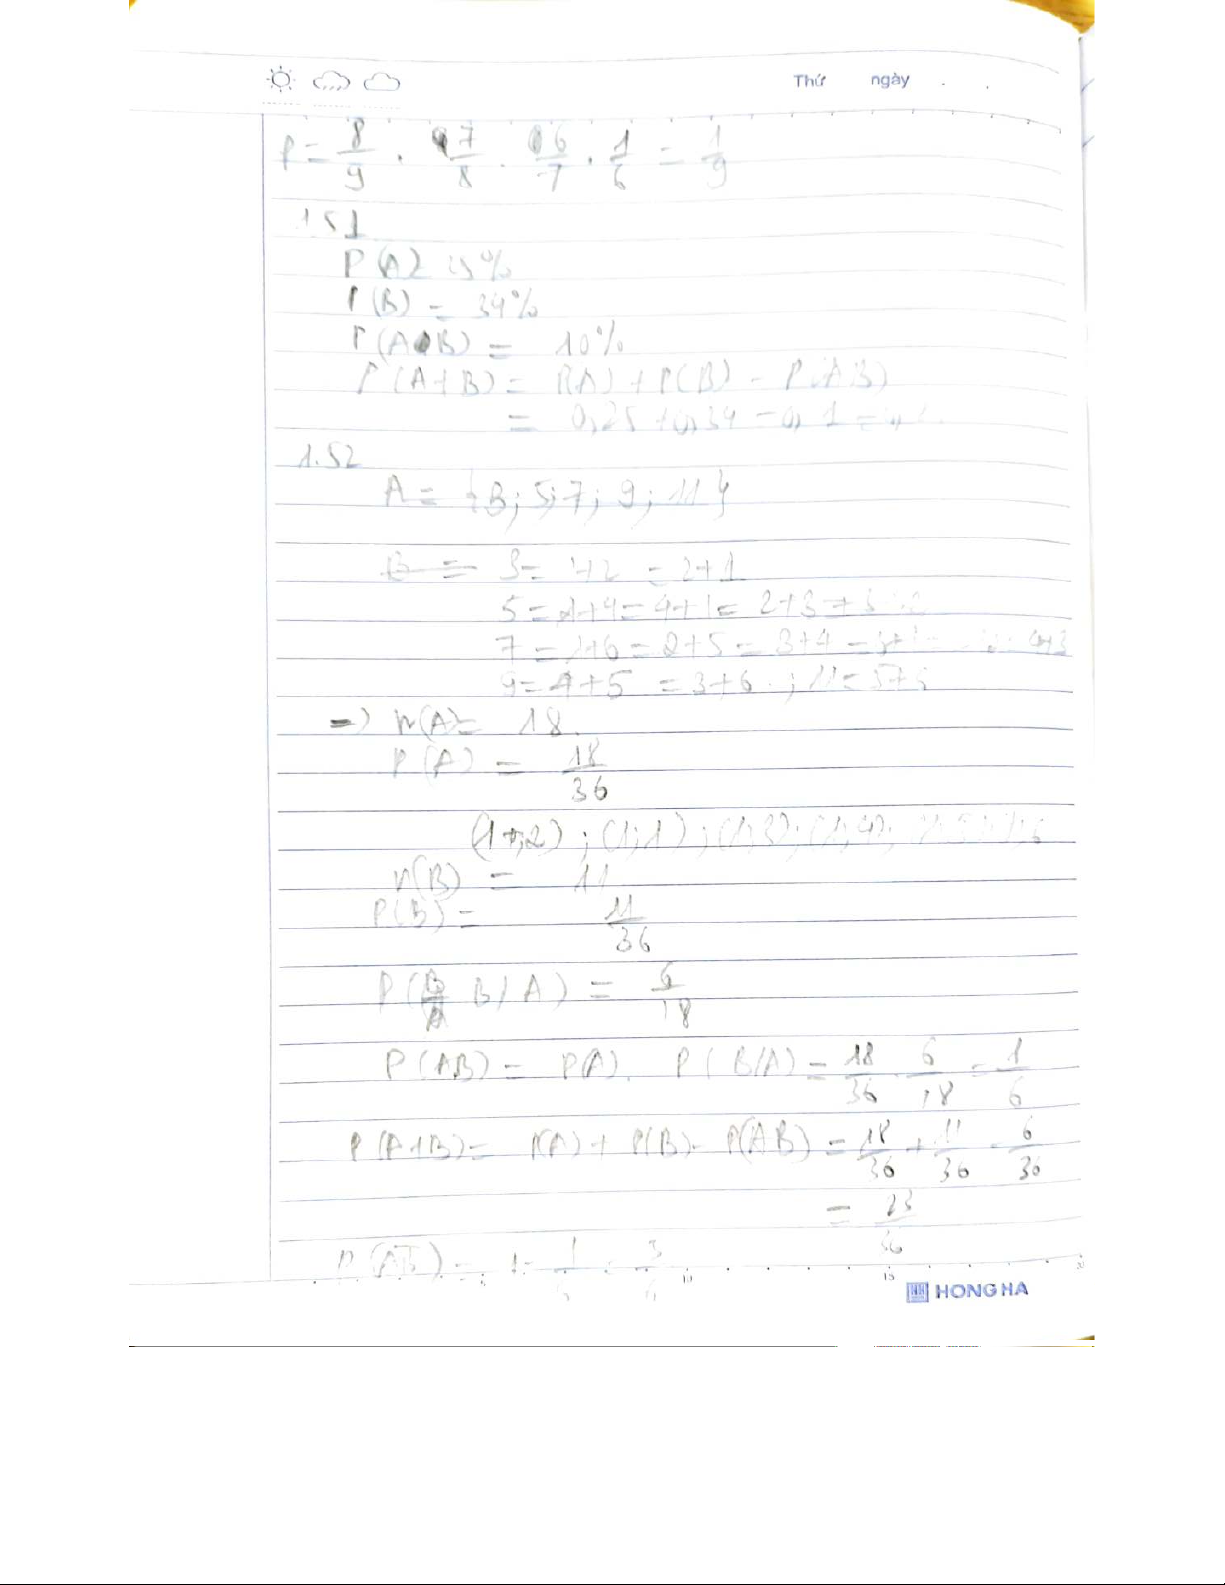 Thứ ngày
P = 8/9 . 7/8 . 6/7 . 1/6 = 1/9
1.51
P(A) = 25%
P(B) = 34%
P(AB) = 10%
P(A+B) = P(A) + P(B) - P(AB)
= 0,25 + 0,34 - 0,1 =
1.52
A = {3; 5; 7; 9; 11}
3 = 1+2 = 2+1
5 = 1+4 = 4+1 = 2+3 =
7 = 1+6 = 2+5 = 3+4 = = 4+3
9 = 4+5 = 3+6 ; 11 = 5+6
=) n(A) = 18
P(A) = 18/36
(1;2); (1;1); (1;3); (1;4);
n(B) = 11
P(B) = 11/36
P(B/A) = 6/18
P(AB) = P(A). P(B/A) = 18/36 . 6/18 = 1/6
P(A+B) = P(A) + P(B) - P(AB) = 18/36 + 11/36 - 6/36
= 23/36
HONG HA